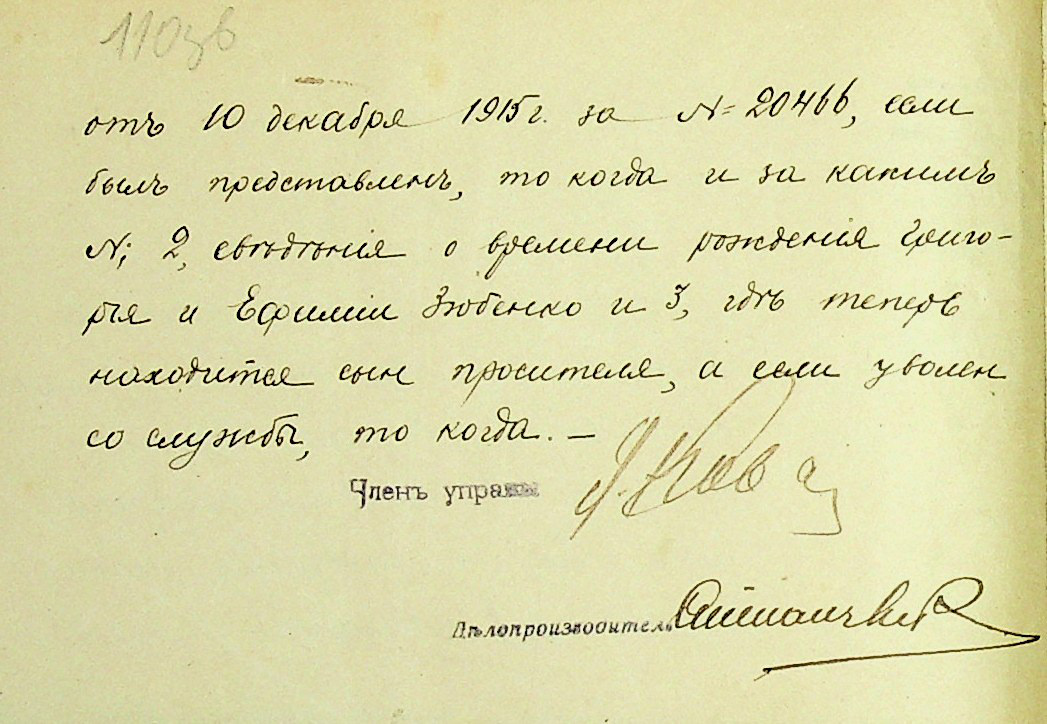 110 зв
отъ 10 декабря 1915 г. за №=20466, если
былъ представленъ, то когда и за какимъ
№; 2, свѣдѣнія о времени рождения Григо-
рія и Ефиміи Зюбенко и 3, гдѣ теперь
находится сын просителя, а если уволен
со службы, то когда. —
Членъ управы
Дѣлопроизводитель